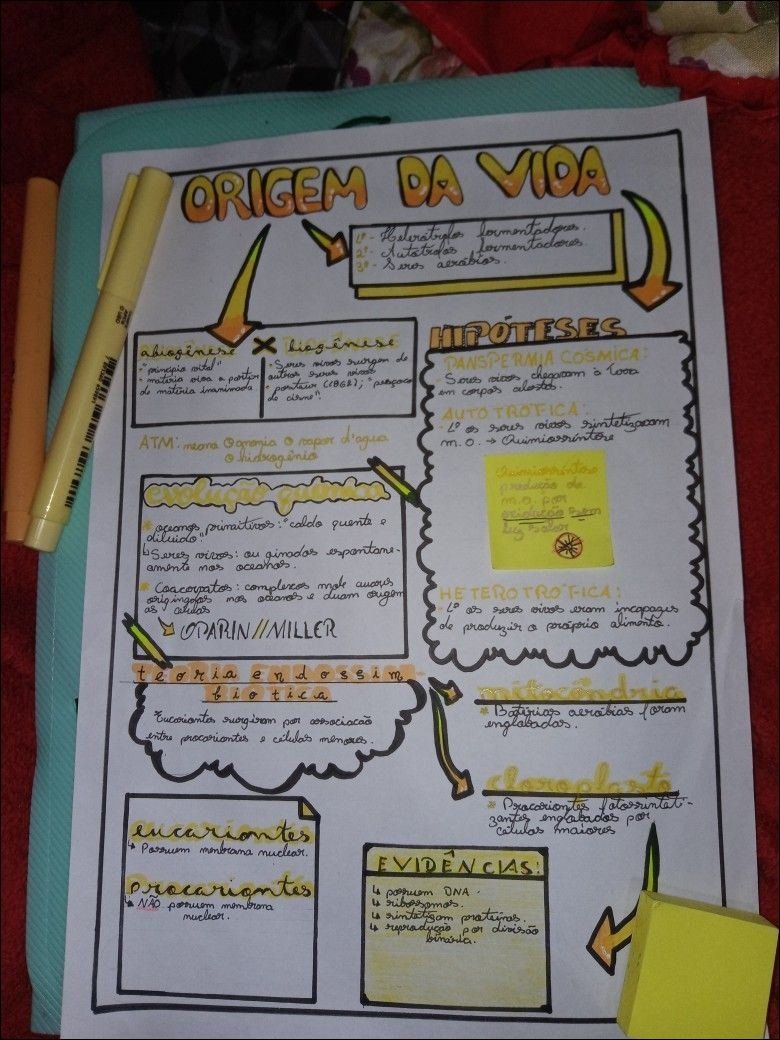 ORIGEM DA VIDA
1º - Heterótrofos fermentadores.
2º - Autótrofos fermentadores.
3º - Seres aeróbios.
abiogênese X biogênese
- "princípio vital"
- matéria viva a partir
de matéria inanimada
- Seres vivos surgem de
outros seres vivos
- pasteur (1862); "pescoço
de cisne".
ATM: metano amonia vapor d'água
hidrogênio
evolução química
* oceanos primitivos: "caldo quente e
diluído"
↳ Seres vivos: originados espontane-
amente nos oceanos.
* Coacervatos: complexos moleculares
nos oceanos e deram origem
as células
OPARIN//MILLER
HIPÓTESES
PANSPERMIA CÓSMICA:
- Seres vivos chegaram à Terra
em corpos celestes.
AUTOTRÓFICA:
- 1º os seres vivos sintetizavam
m.o. → Quimiossíntese
Quimiossíntese
produção de
m.o. por
oxidação sem
luz solar
HETEROTRÓFICA:
- 1º os seres vivos eram incapazes
de produzir o próprio alimento.
teoria endossim-
biotica
Eucariontes surgiram por associação
entre procariontes e células menores.
mitocôndria
* Batérias aeróbias foram
englobadas.
cloroplasto
* Procariontes fotossinteti-
zantes englobados por
células maiores
eucariontes
↳ Possuem membrana nuclear.
procariontes
↳ NÃO possuem membrana
nuclear.
EVIDÊNCIAS:
↳ possuem DNA.
↳ ribossomos.
↳ sintetizam proteínas.
↳ reprodução por divisão
binária.